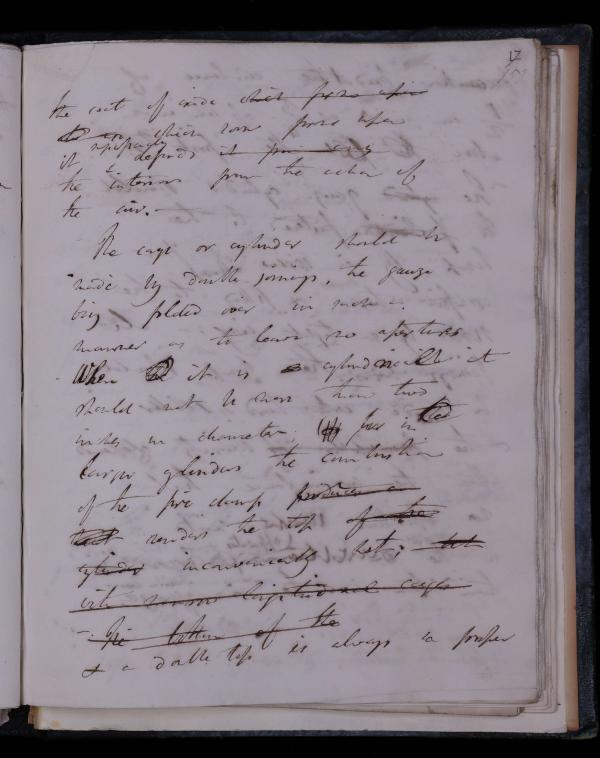 17
the coat of oxide which forms upon
which soon forms upon
superficially
it defends it from any
the interior from the action of
the air.—
The cage or cylinder should be
made by double joinings, the gauze
being folded over in such a
manner as to leave no apertures
When it is cylindrical it
should not be more than two
inches in diameter; for in
larger cylinders the combustion
of the fire damp produces a
renders the top of the
cylinder inconveniently hot; but
with narrow longitudinal cages
The bottom of the
& a double top is always a proper